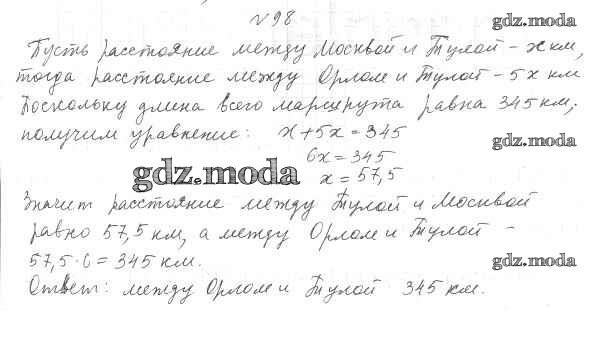 № 98
gdz.moda
Пусть расстояние между Москвой и Тулой - x км,
тогда расстояние между Орлом и Тулой - 5x км
Поскольку длина всего маршрута равна 345 км,
получим уравнение: x + 5x = 345
gdz.moda
6x = 345
gdz.moda
x = 57,5
Значит расстояние между Тулой и Москвой
равно 57,5 км, а между Орлом и Тулой -
57,5 · 6 = 345 км.
gdz.moda
Ответ: между Орлом и Тулой 345 км.